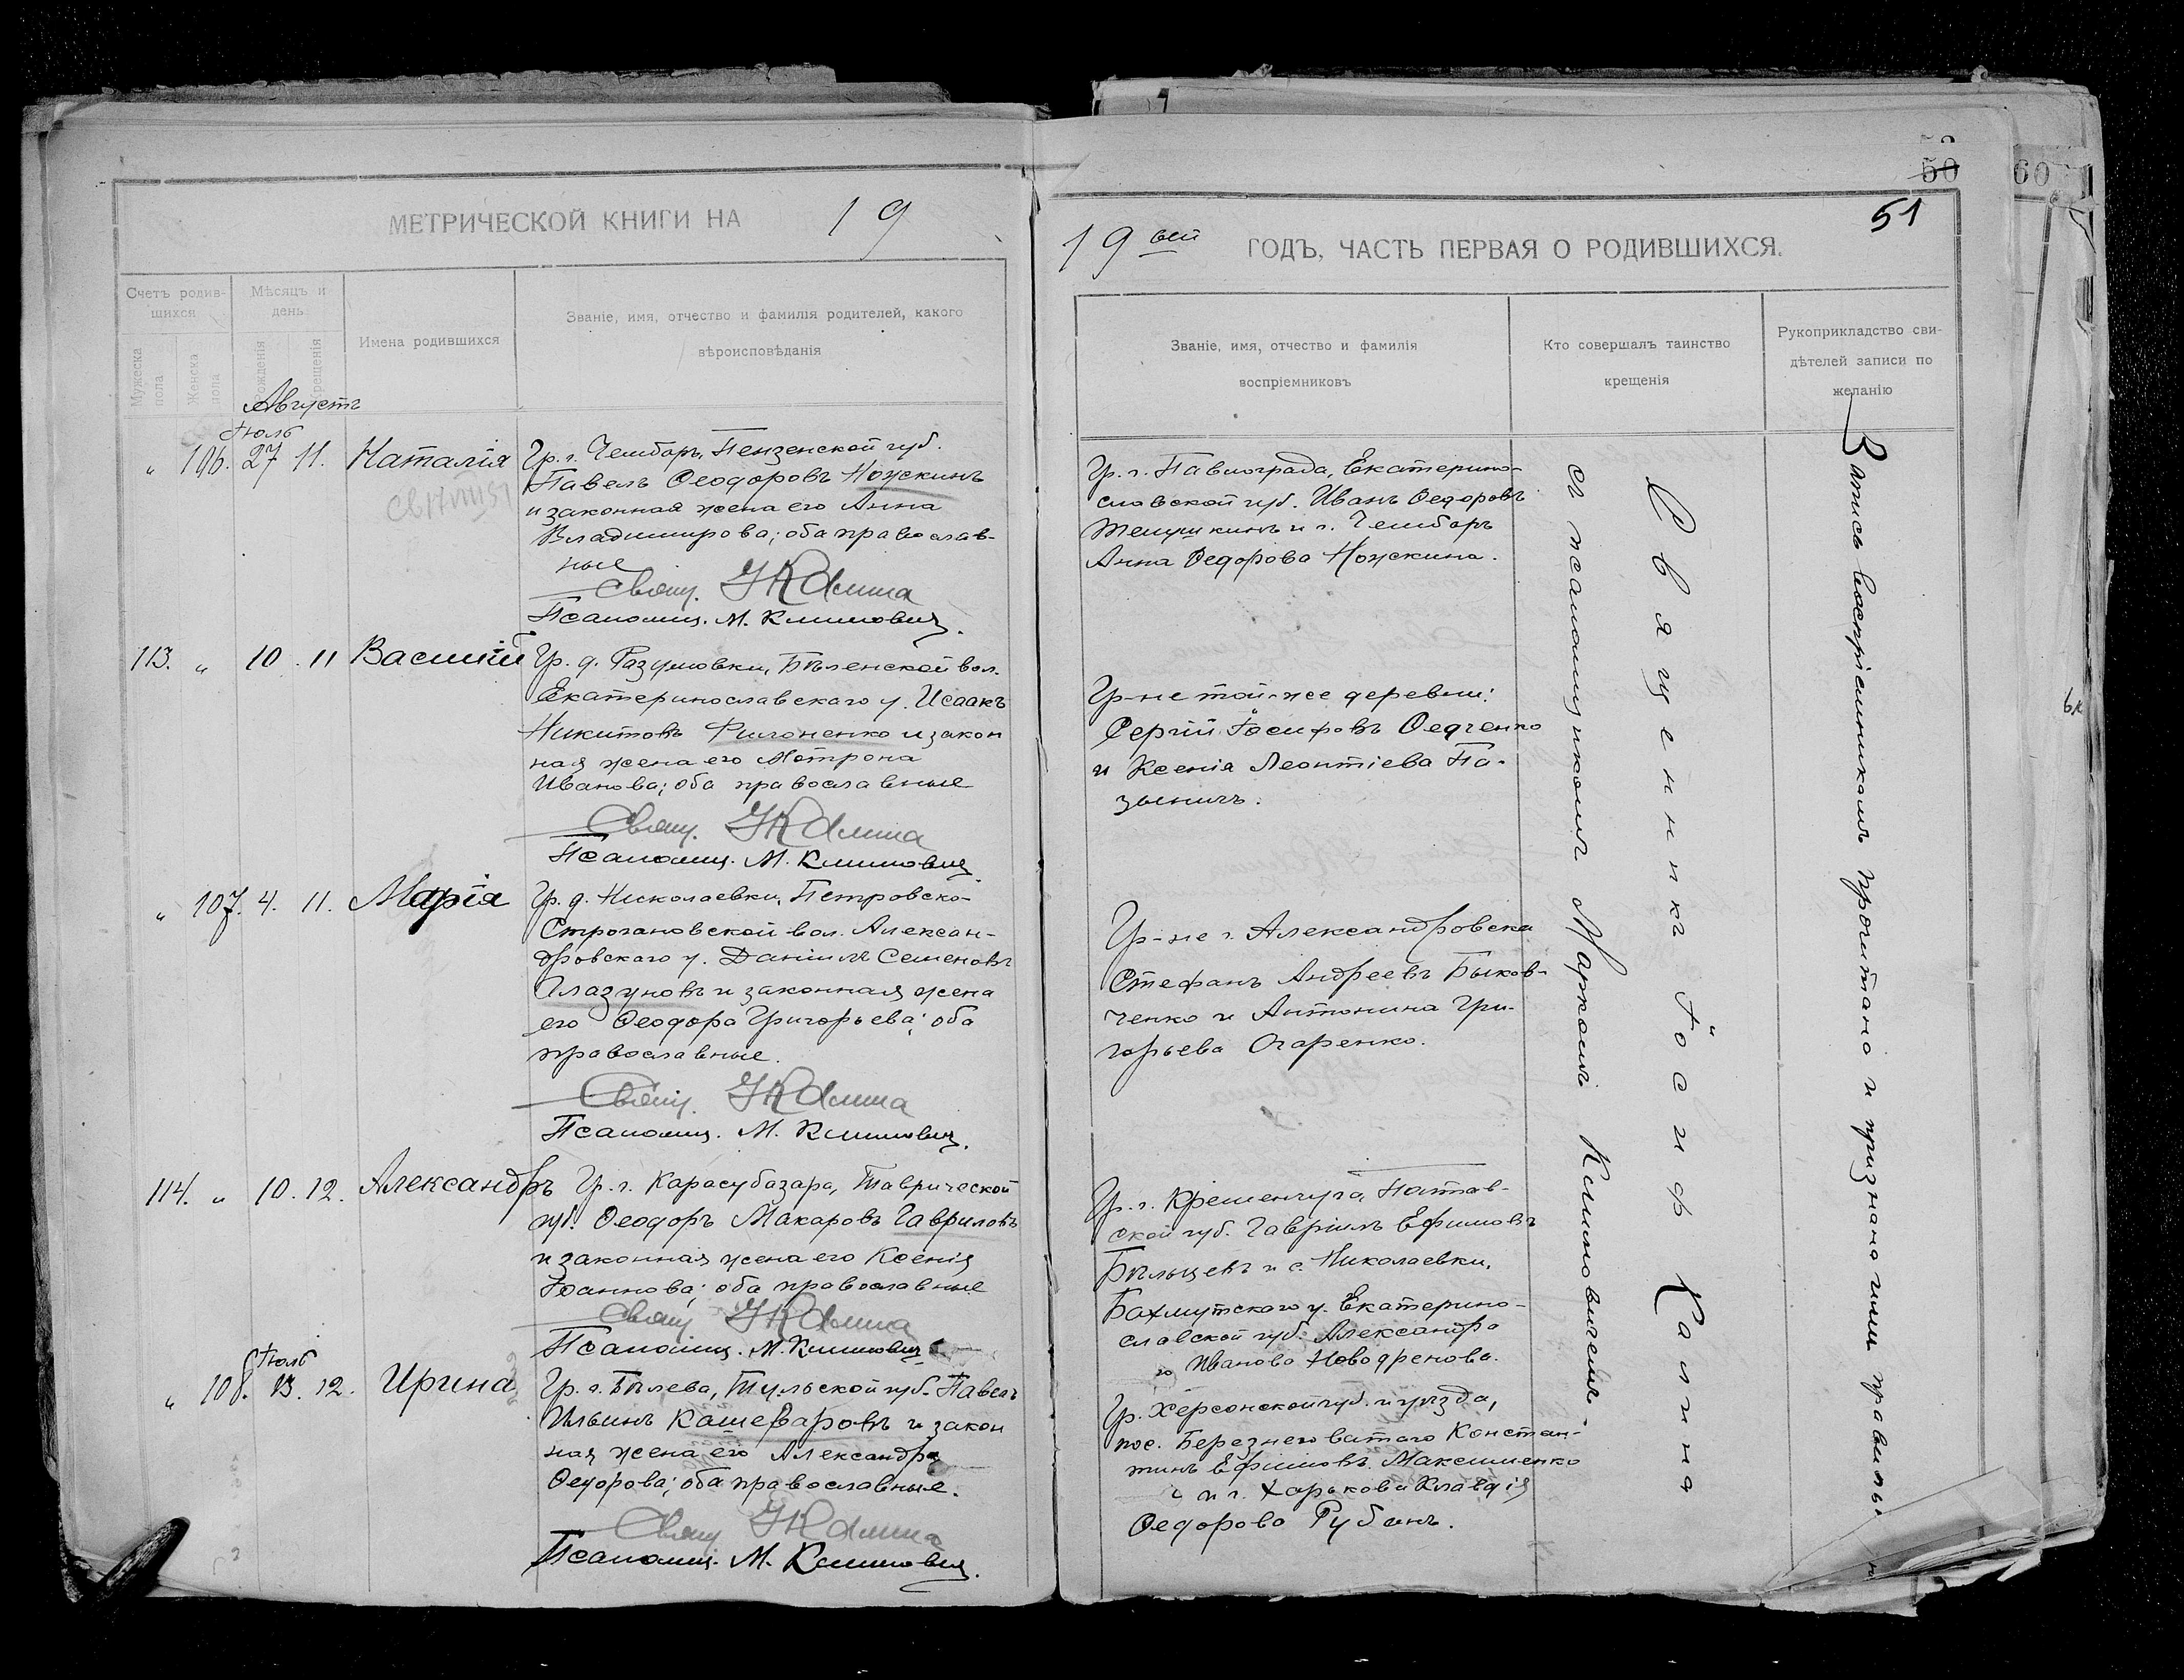 МЕТРИЧЕСКОЙ КНИГИ НА 19
Счетъ родив-
шихся
Мѣсяцъ и
день
Имена родившихся
Званіе, имя, отчество и фамилія родителей, какого
вѣроисповѣданія
Мужеска
пола
Женска
пола
рожденія
крещенія
Августъ
Іюль
„ 106. 27 11. Наталія
Гр. г. Чембаръ, Пензенской губ.
Павелъ Ѳеодоровъ Ножкинъ
и законная жена его Анна
Владимирова; оба православ-
ные
Свящ. І Калина
Псаломщ. М. Климовичъ.
113. „ 10. 11 Василій
Гр. д. Разумовки, Бѣленской вол.
Екатеринославскаго у. Исаакъ
Никитовъ Филоненко и закон
ная жена его Матрона
Иванова; оба православные
Свящ. І Калина
Псаломщ. М. Климовичъ.
„ 107. 4. 11. Марія
Гр. д. Николаевки, Петровско-
Строгановской вол. Алексан-
дровскаго у. Даніилъ Семеновъ
Глазуновъ и законная жена
его Ѳеодора Григорьева; оба
православные.
Свящ. І Калина
Псаломщ. М. Климовичъ.
114. „ 10. 12. Александръ
Гр. г. Карасубазара, Таврической
губ. Ѳеодоръ Макаровъ Гавриловъ
и законная жена его Ксенія
Іоаннова; оба православные
Свящ І Калина
Псаломщ. М. Климовичъ
Іюль
„ 108. 13. 12. Ирина
Гр. г. Бѣлева, Тульской губ. Павелъ
Ильинъ Кашеваровъ и закон
ная жена его Александра
Ѳедорова; оба православные.
Свящ І Калина
Псаломщ. М. Климовичъ.
50
60
51
19 ГОДЪ, ЧАСТЬ ПЕРВАЯ О РОДИВШИХСЯ.
Званіе, имя, отчество и фамилія
воспріемниковъ
Кто совершалъ таинство
крещенія
Рукоприкладство сви-
дѣтелей записи по
желанію
Гр. г. Павлограда, Екатерино-
славской губ. Иванъ Ѳедоровъ
и г. Чембаръ
Анна Ѳедорова Ножкина.
Гр-не той-же деревни:
Сергій Іосифовъ Ѳедченко
и Ксенія Леонтіева Па-
Гр-не г. Александровска
Стефанъ Андреевъ Быков-
ченко и Антонина Гри-
горьева Огаренко.
Гр. г. Кременчуга, Полтав-
ской губ. Гавріилъ Ефимовъ
Бѣльцевъ и с. Николаевки,
Бахмутскаго у. Екатерино-
славской губ. Александра
Иванова
Гр. Херсонской губ. и уѣзда,
пос. Березнеговатаго Констан-
тинъ Ефимовъ Максименко
и г. Харькова Клавдія
Ѳедорова Рубанъ.
Священникъ Іосифъ Калина
съ псаломщикомъ Маркомъ Климовичемъ.
Запись воспріемникамъ прочитана и признана ими правильн